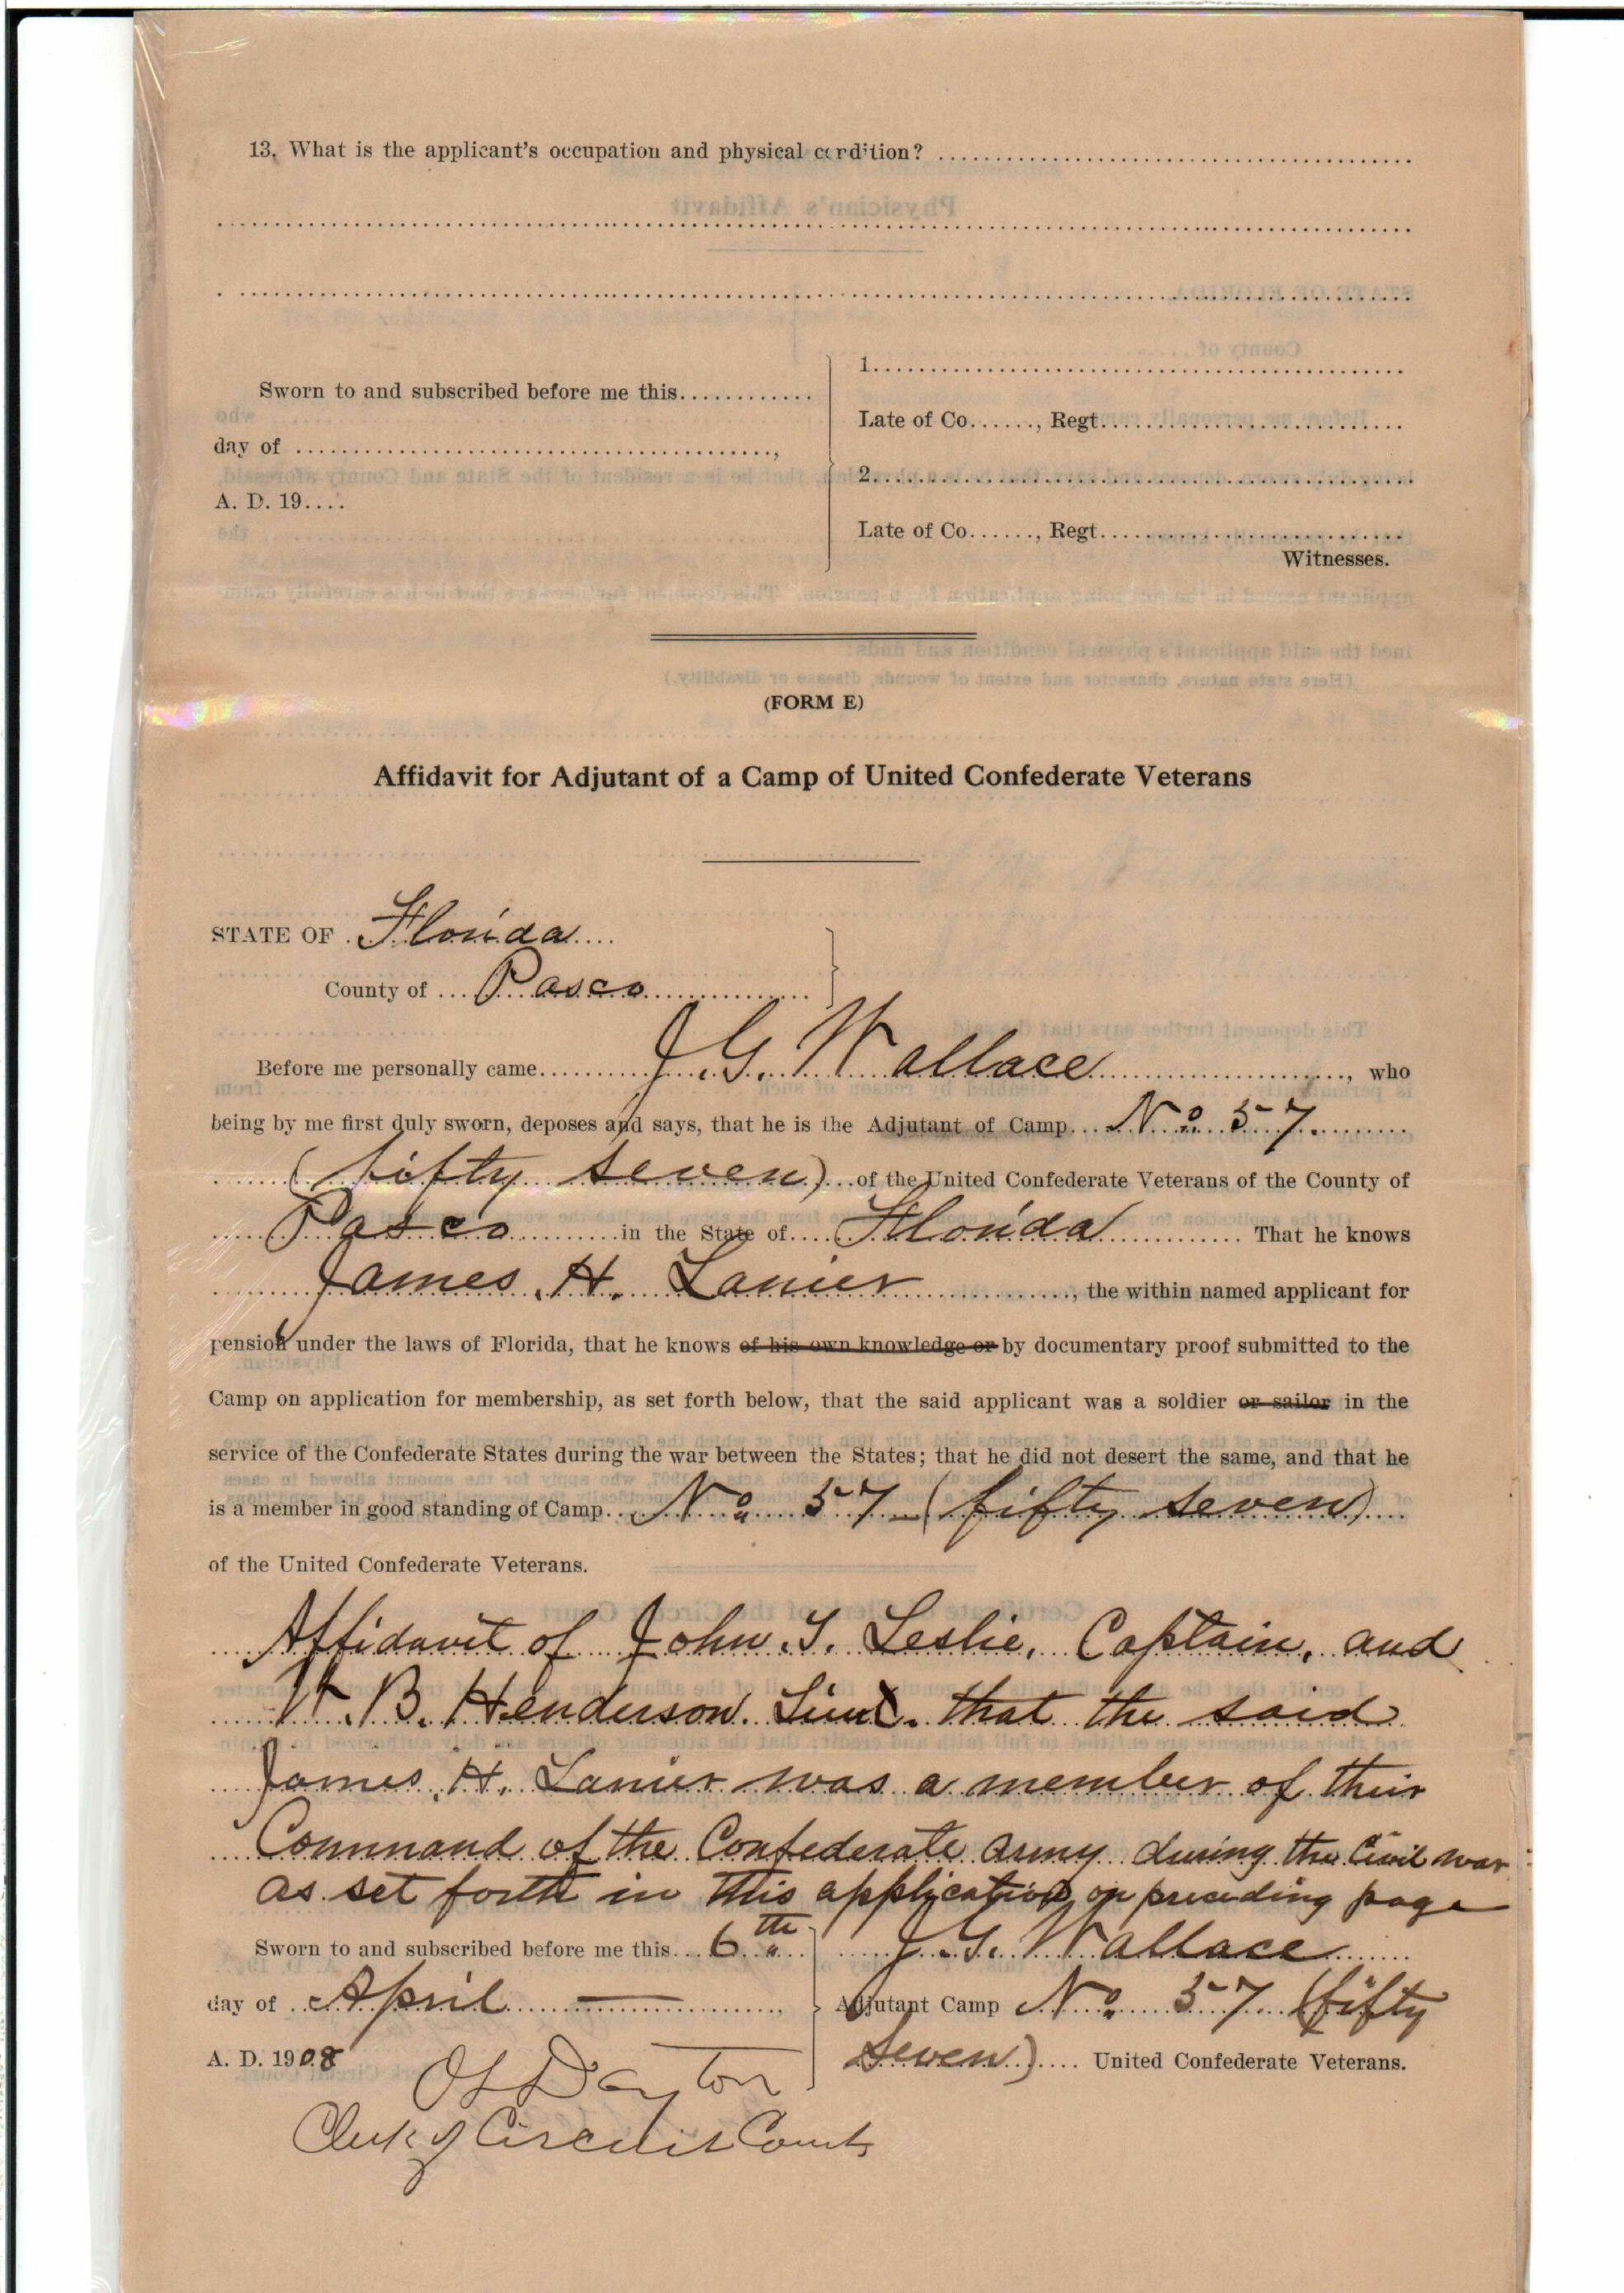 13. What is the applicant's occupation and physical condition?
Sworn to and subscribed before me this
day of
A. D. 19
1.
Late of Co......, Regt.
2.
Late of Co......, Regt.
Witnesses.
(FORM E)
Affidavit for Adjutant of a Camp of United Confederate Veterans
STATE OF Florida
County of Pasco
Before me personally came J. G. Wallace, who
being by me first duly sworn, deposes and says, that he is the Adjutant of Camp No. 57.
(fifty seven) of the United Confederate Veterans of the County of
Pasco in the State of Florida That he knows
James. H. Lanier, the within named applicant for
pension under the laws of Florida, that he knows of his own knowledge or by documentary proof submitted to the
Camp on application for membership, as set forth below, that the said applicant was a soldier or sailor in the
service of the Confederate States during the war between the States; that he did not desert the same, and that he
is a member in good standing of Camp No. 57 (fifty seven)
of the United Confederate Veterans.
Affidavit of John. T. Leslie, Captain, and
W. B. Henderson. Lieut. that the said
James. H. Lanier was a member of their
Command of the Confederate army during the Civil war
as set forth in this application on preceding page
Sworn to and subscribed before me this 6th
day of April
A. D. 1908
J. G. Wallace
Adjutant Camp No. 57 (fifty
seven) United Confederate Veterans.
Dayton
Clerk of Circuit Court